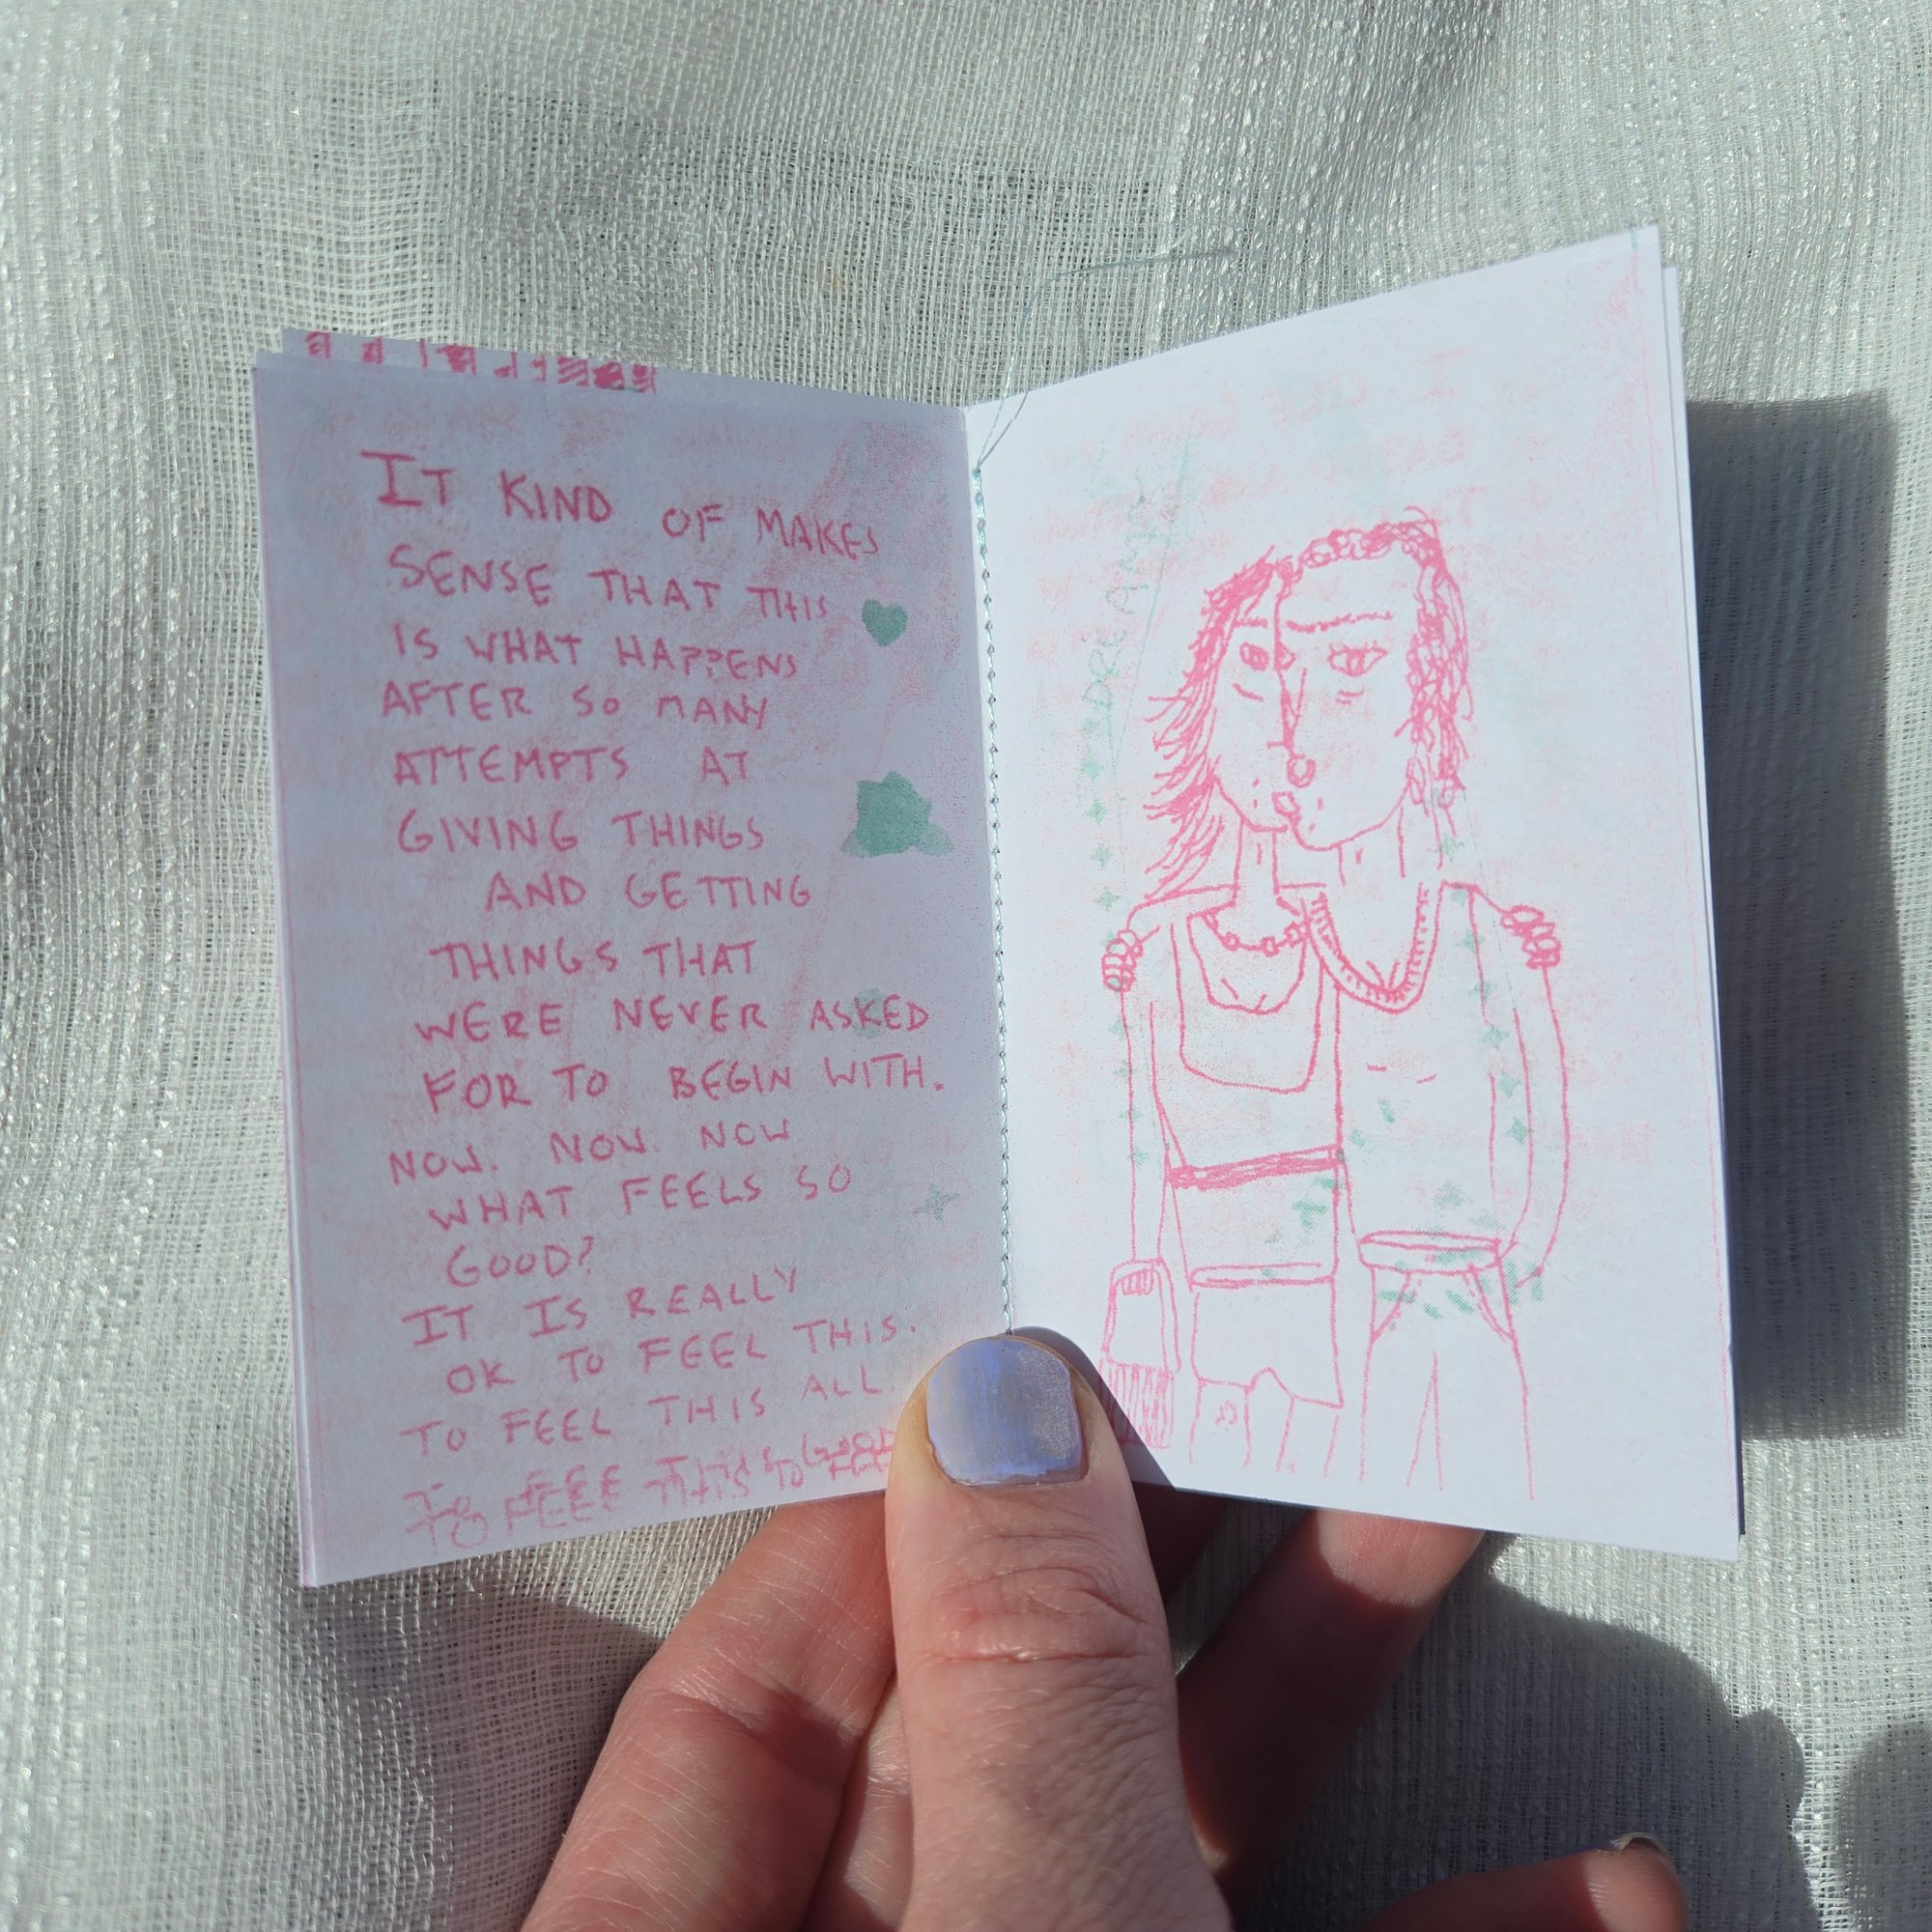 It KIND OF MAKES
SENSE THAT THIS
IS WHAT HAPPENS
AFTER SO MANY
ATTEMPTS AT
GIVING THINGS
AND GETTING
THINGS THAT
WERE NEVER ASKED
FOR TO BEGIN WITH.
NOW. NOW. NOW
WHAT FEELS SO
GOOD?
IT IS REALLY
OK TO FEEL THIS.
TO FEEL THIS ALL.
TO FEEL THIS